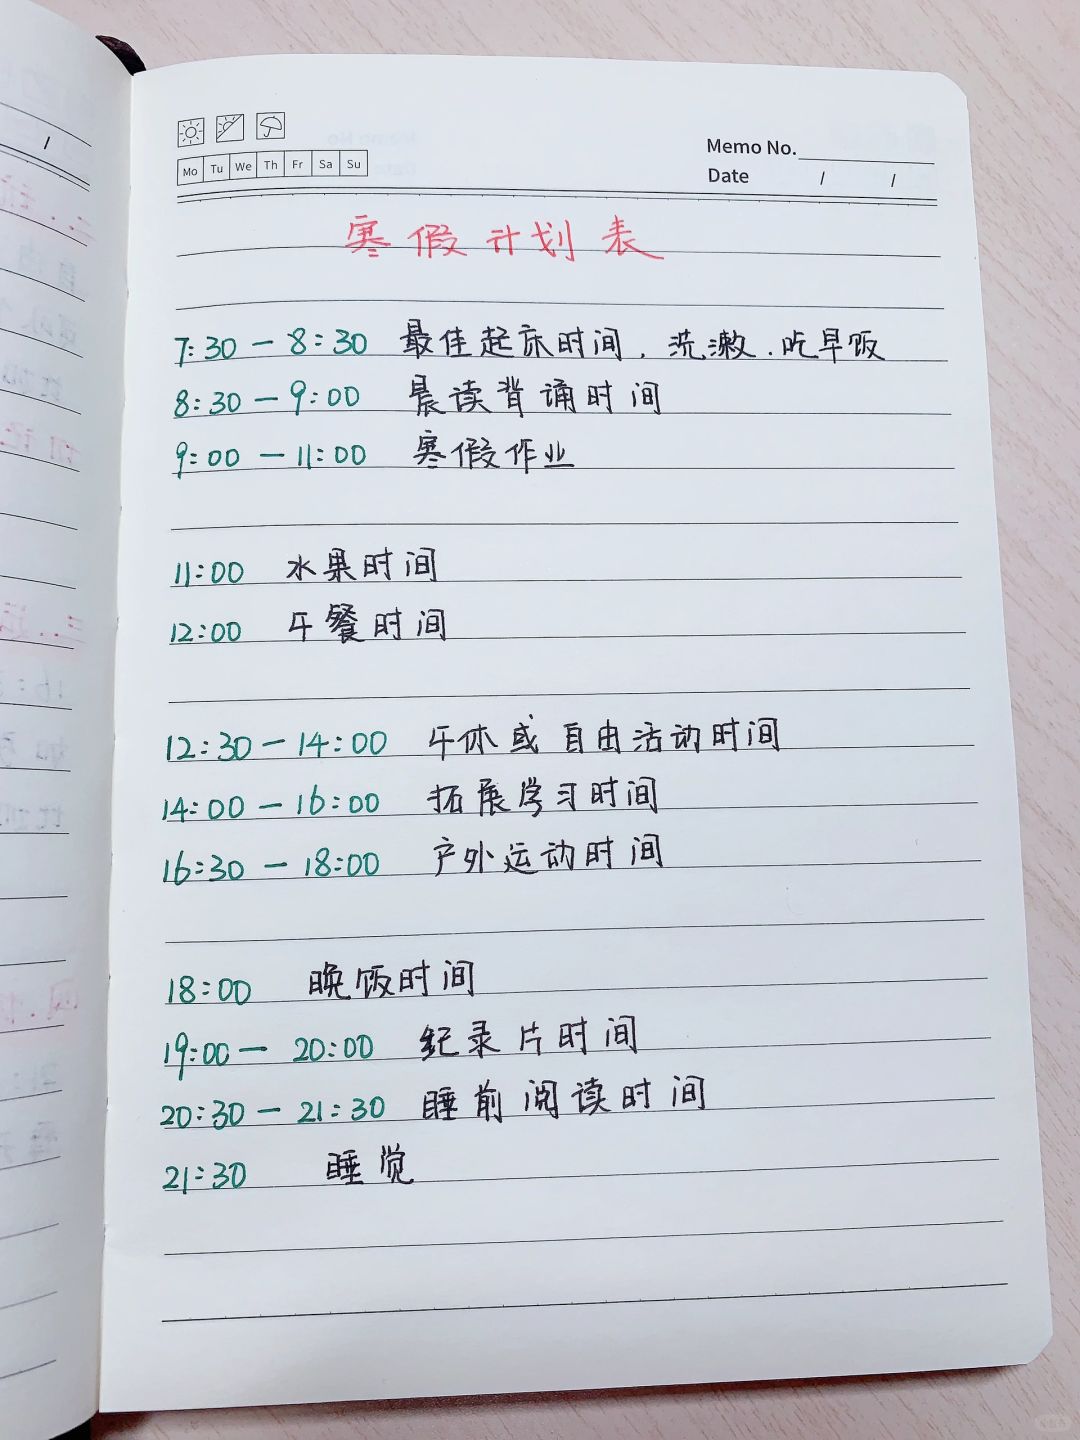 Mo Tu We Th Fr Sa Su
Memo No.
Date / /
寒假计划表
7:30 — 8:30 最佳起床时间、洗漱、吃早饭
8:30 — 9:00 晨读背诵时间
9:00 — 11:00 寒假作业
11:00 水果时间
12:00 午餐时间
12:30 — 14:00 午休或自由活动时间
14:00 — 16:00 拓展学习时间
16:30 — 18:00 户外运动时间
18:00 晚饭时间
19:00 — 20:00 纪录片时间
20:30 — 21:30 睡前阅读时间
21:30 睡觉